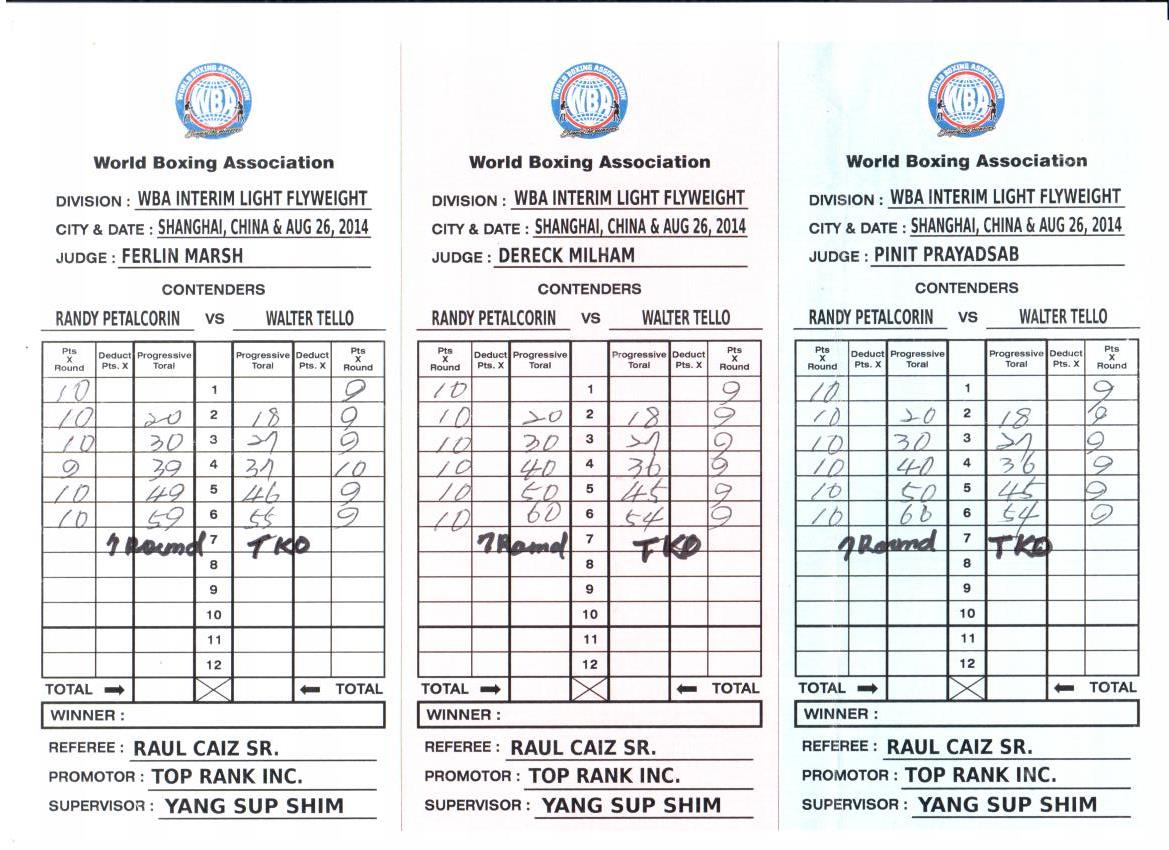 WORLD BOXING ASSOCIATION
WBA
World Boxing Association
DIVISION : WBA INTERIM LIGHT FLYWEIGHT
CITY & DATE : SHANGHAI, CHINA & AUG 26, 2014
JUDGE : FERLIN MARSH
CONTENDERS
RANDY PETALCORIN VS WALTER TELLO
Pts X Round Deduct Pts. X Progressive Toral Progressive Toral Deduct Pts. X Pts X Round
10 1 9
10 20 2 18 9
10 30 3 27 9
9 39 4 37 10
10 49 5 46 9
10 59 6 55 9
7 Round 7 TKO
8
9
10
11
12
TOTAL TOTAL
WINNER :
REFEREE : RAUL CAIZ SR.
PROMOTOR : TOP RANK INC.
SUPERVISOR : YANG SUP SHIM
WORLD BOXING ASSOCIATION
WBA
World Boxing Association
DIVISION : WBA INTERIM LIGHT FLYWEIGHT
CITY & DATE : SHANGHAI, CHINA & AUG 26, 2014
JUDGE : DERECK MILHAM
CONTENDERS
RANDY PETALCORIN VS WALTER TELLO
Pts X Round Deduct Pts. X Progressive Toral Progressive Toral Deduct Pts. X Pts X Round
10 1 9
10 20 2 18 9
10 30 3 27 9
10 40 4 36 9
10 50 5 45 9
10 60 6 54 9
7 Round 7 TKO
8
9
10
11
12
TOTAL TOTAL
WINNER :
REFEREE : RAUL CAIZ SR.
PROMOTOR : TOP RANK INC.
SUPERVISOR : YANG SUP SHIM
WORLD BOXING ASSOCIATION
WBA
World Boxing Association
DIVISION : WBA INTERIM LIGHT FLYWEIGHT
CITY & DATE : SHANGHAI, CHINA & AUG 26, 2014
JUDGE : PINIT PRAYADSAB
CONTENDERS
RANDY PETALCORIN VS WALTER TELLO
Pts X Round Deduct Pts. X Progressive Toral Progressive Toral Deduct Pts. X Pts X Round
10 1 9
10 20 2 18 9
10 30 3 27 9
10 40 4 36 9
10 50 5 45 9
10 60 6 54 9
7 Round 7 TKO
8
9
10
11
12
TOTAL TOTAL
WINNER :
REFEREE : RAUL CAIZ SR.
PROMOTOR : TOP RANK INC.
SUPERVISOR : YANG SUP SHIM